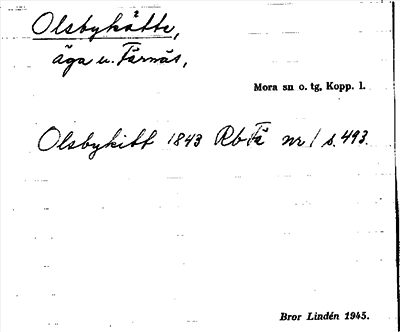 Olsbykätte,
äga u. Färnäs,
Mora sn o. tg, Kopp. l.
Olsbykitt 1843 Rb Fä nr 1 s. 493.
Bror Lindén 1945.